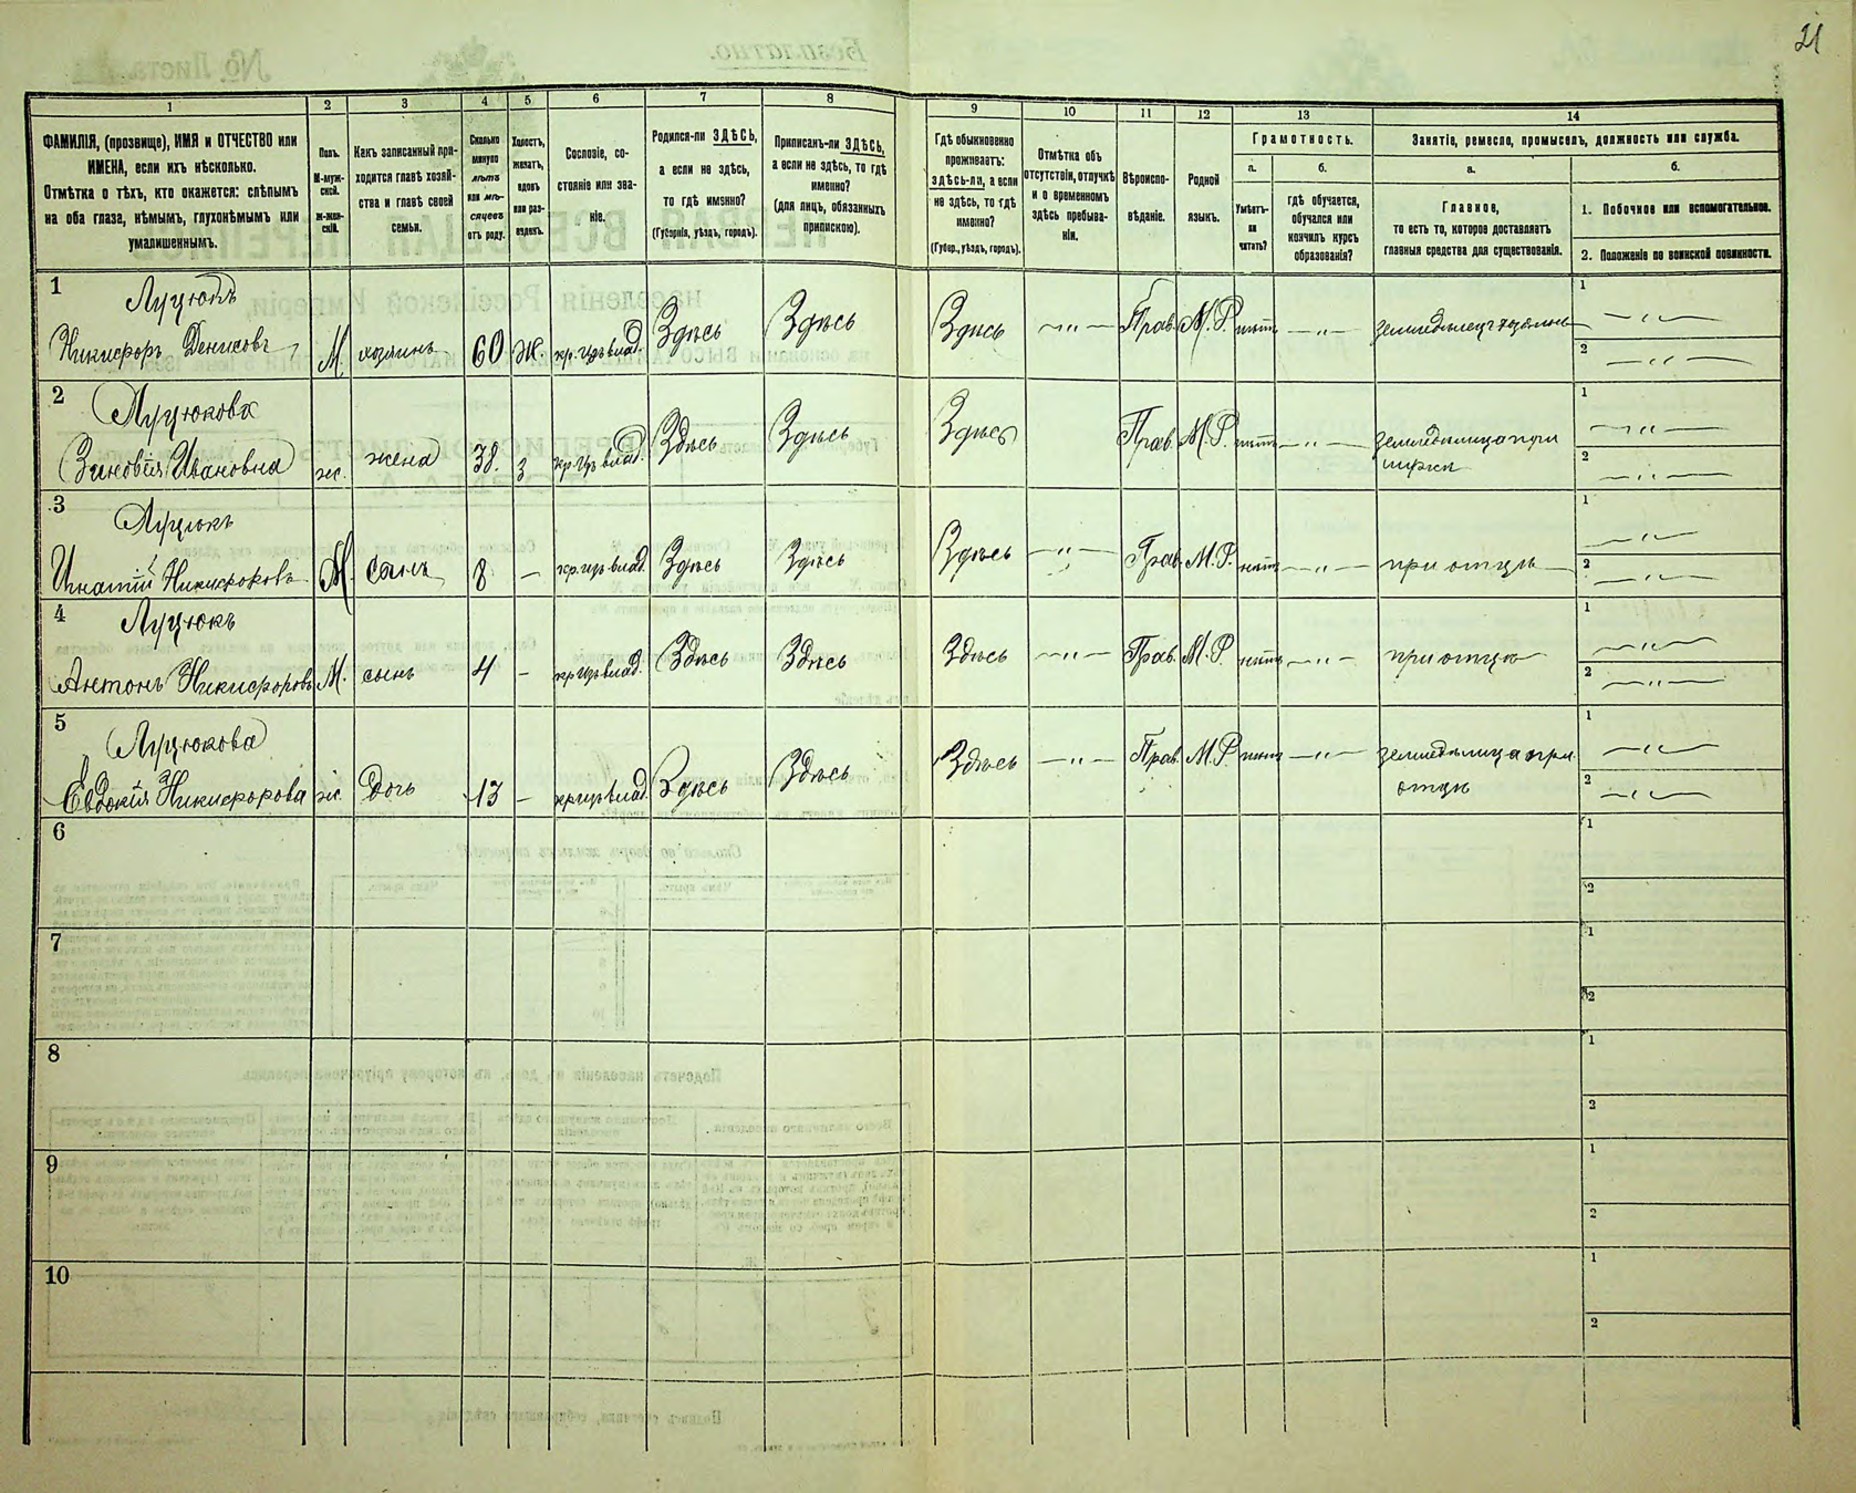 21
1 2 3 4 5 6 7 8 9 10 11 12 13 14
ФАМИЛІЯ, (прозвище), ИМЯ и ОТЧЕСТВО или
ИМЕНА, если ихъ нѣсколько.
Отмѣтка о тѣхъ, кто окажется: слѣпымъ
на оба глаза, нѣмымъ, глухонѣмымъ или
умалишеннымъ.
Полъ.
М-муж-
ской.
ж-жен-
скій.
Какъ записанный при-
ходится главѣ хозяй-
ства и главѣ своей
семьи.
Сколько
минуло
лѣтъ
или мѣ-
сяцевъ
отъ роду.
Холостъ,
женатъ,
вдовъ
или раз-
веденъ.
Сословіе, со-
стояніе или зва-
ніе.
Родился-ли ЗДѢСЬ,
а если не здѣсь,
то гдѣ именно?
(Губернія, уѣздъ, городъ).
Приписанъ-ли ЗДѢСЬ,
а если не здѣсь, то гдѣ
именно?
(для лицъ, обязанныхъ
припискою).
Гдѣ обыкновенно
проживаетъ:
здѣсь-ли, а если
не здѣсь, то гдѣ
именно?
(Губер., уѣздъ, городъ).
Отмѣтка объ
отсутствіи, отлучкѣ
и о временномъ
здѣсь пребыва-
ніи.
Вѣроиспо-
вѣданіе.
Родной
языкъ.
Грамотность.
а.
Умѣетъ-
ли
читать?
б.
гдѣ обучается,
обучался или
кончилъ курсъ
образованія?
Занятіе, ремесло, промыселъ, должность или служба.
а.
Главное,
то есть то, которое доставляетъ
главныя средства для существованія.
б.
1. Побочное или вспомогательное.
2. Положеніе по воинской повинности.
1 Луцюкъ
Никифоръ Денисовъ М. хозяинъ 60 Ж. Здѣсь Здѣсь Здѣсь —"— Прав. М.Р. нѣтъ —"— земледѣлецъ хозяинъ
1 —"—
2 —"—
2 Луцюкова
Зиновія Ивановна ж. жена 38. з Здѣсь Здѣсь Здѣсь Прав. М.Р. нѣтъ —"— земледѣлица при
мужѣ
1 —"—
2 —"—
3 Луцюкъ
Игнатій Никифоровъ М. сынъ 8 — Здѣсь Здѣсь Здѣсь —"— Прав. М.Р. нѣтъ —"— при отцѣ
1 —"—
2 —"—
4 Луцюкъ
Антонъ Никифоровъ М. сынъ 4 — Здѣсь Здѣсь Здѣсь —"— Прав. М.Р. нѣтъ —"— при отцѣ
1 —"—
2 —"—
5 Луцюкова
Евдокія Никифорова ж. Дочь 13 — Здѣсь Здѣсь Здѣсь —"— Прав. М.Р. нѣтъ —"— земледѣлица при
отцѣ
1 —"—
2 —"—
6
1
2
7
1
2
8
1
2
9
1
2
10
1
2